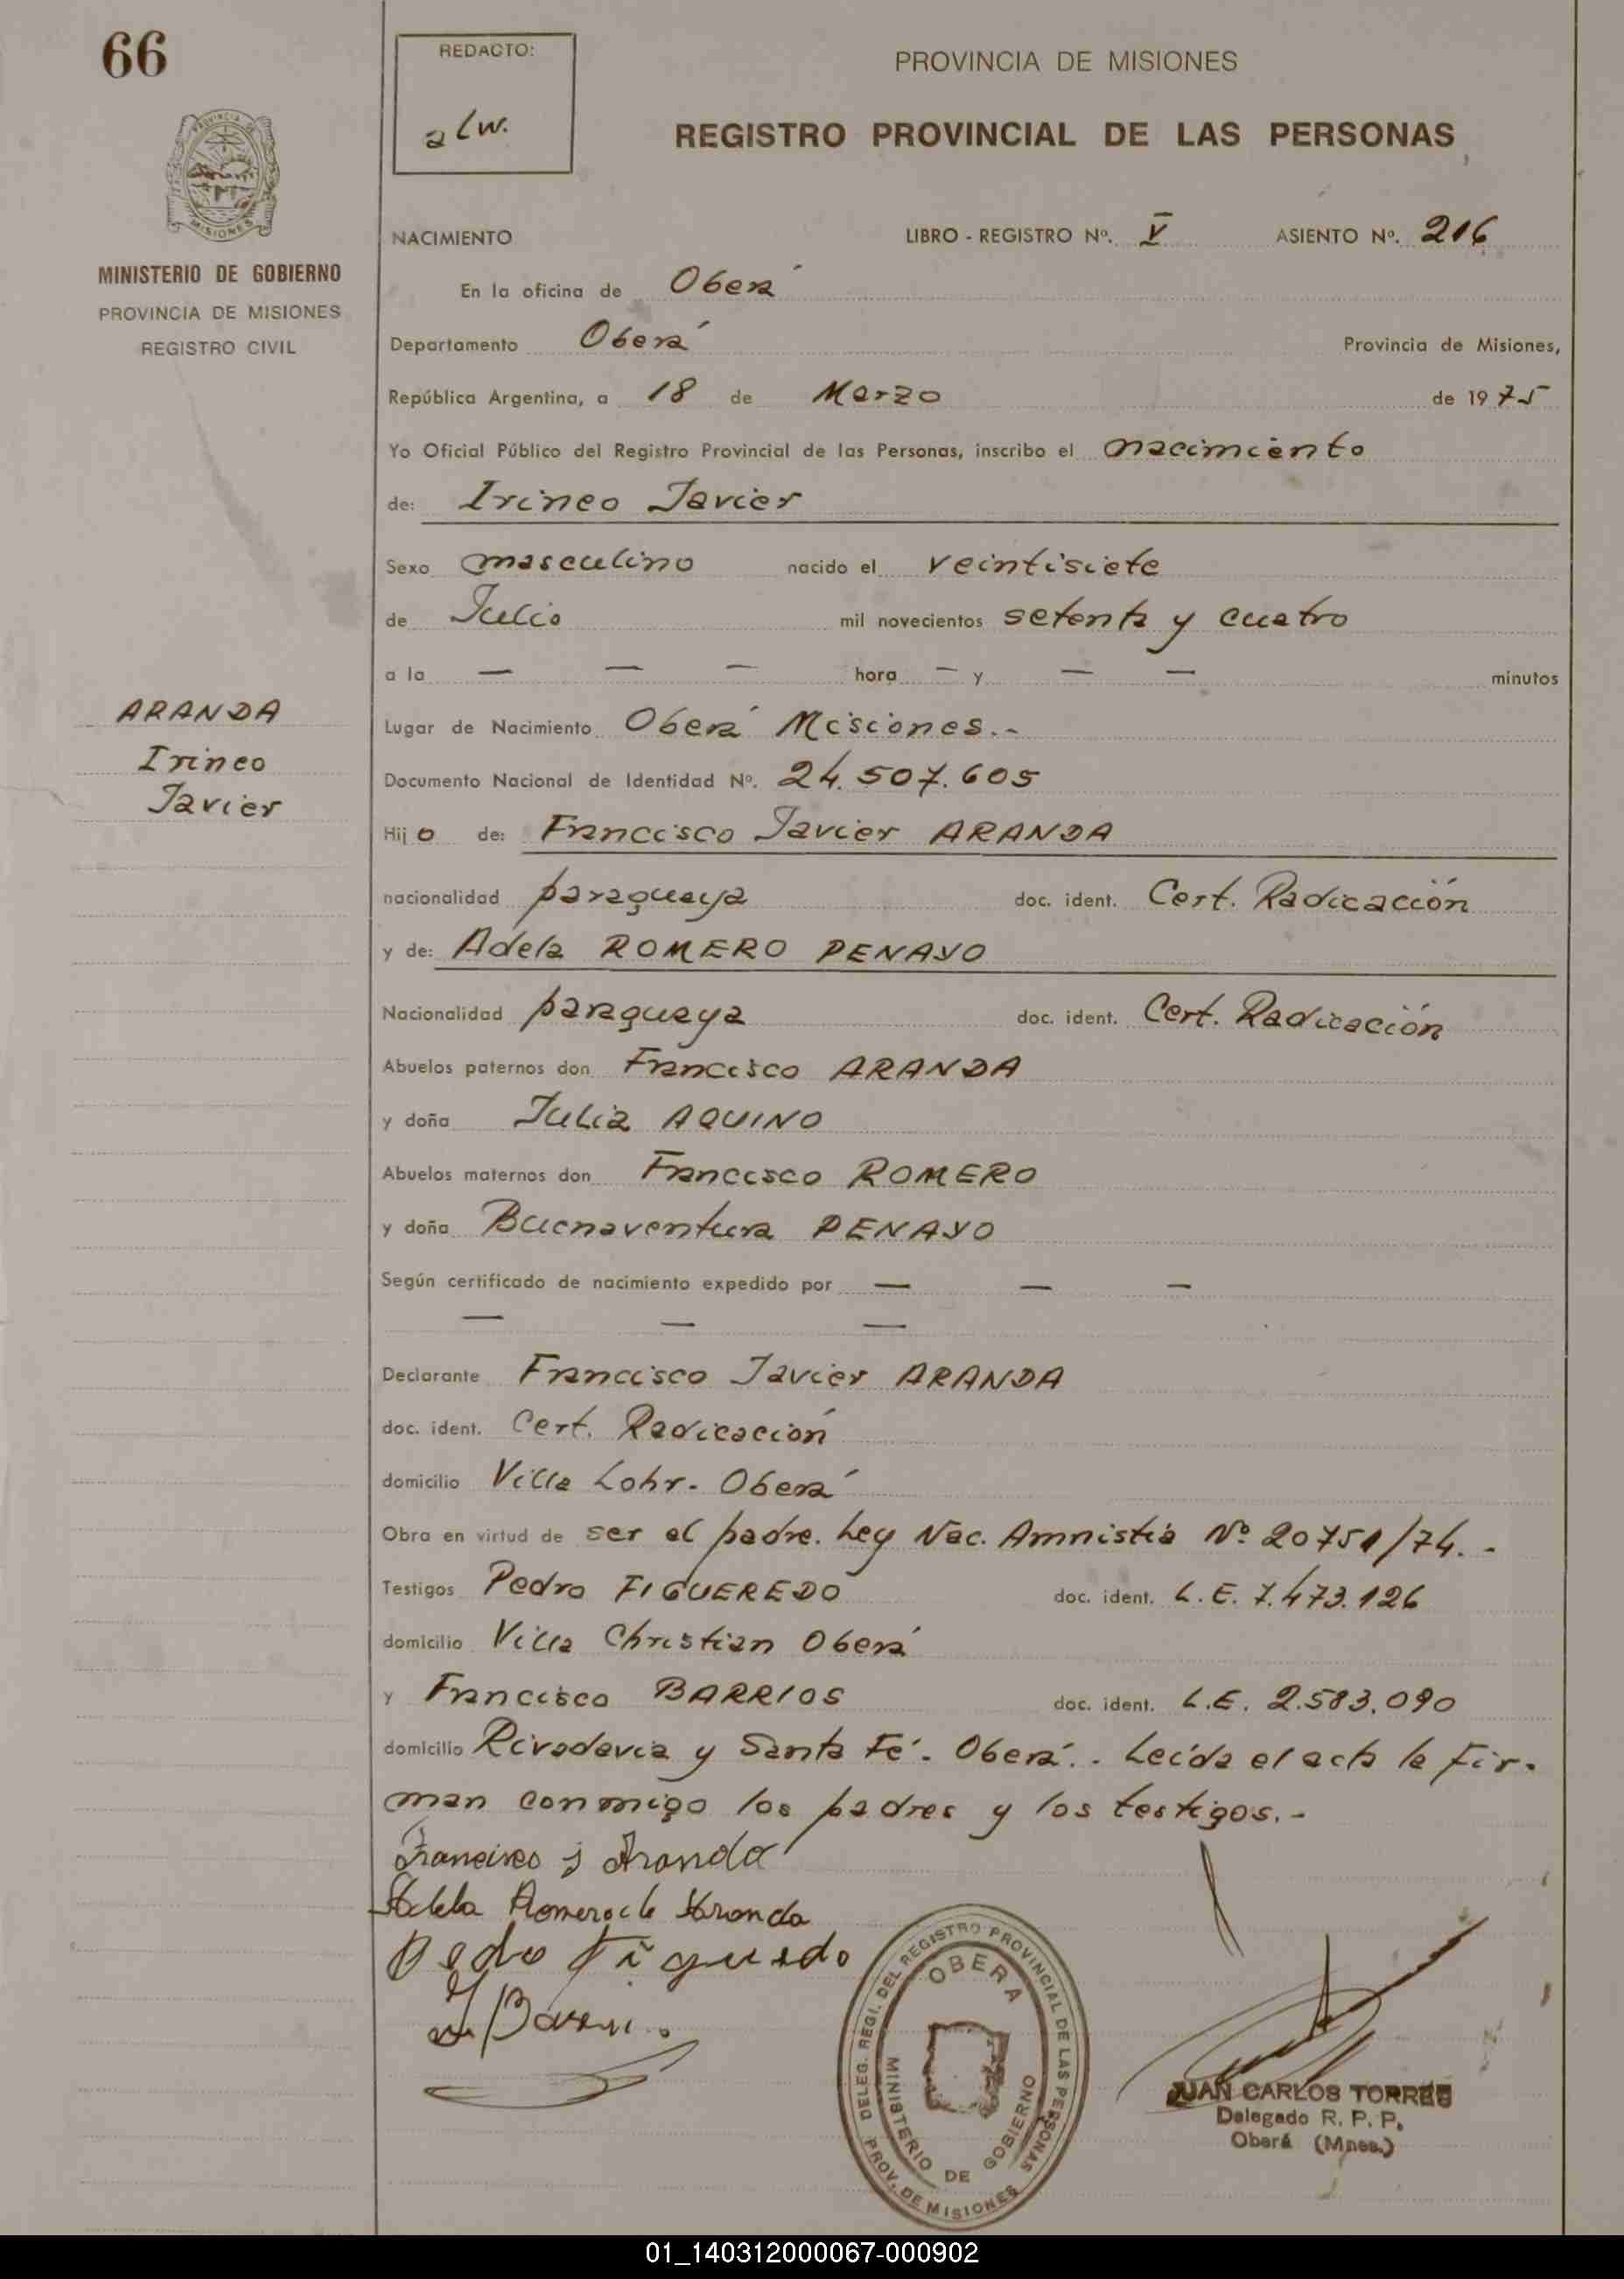 66
REDACTO:
alw.
PROVINCIA DE MISIONES
REGISTRO PROVINCIAL DE LAS PERSONAS
PROVINCIA DE MISIONES
NACIMIENTO LIBRO - REGISTRO Nº. V ASIENTO Nº. 216
MINISTERIO DE GOBIERNO
PROVINCIA DE MISIONES
REGISTRO CIVIL
En la oficina de Oberá
Departamento Oberá Provincia de Misiones,
República Argentina, a 18 de Marzo de 1975
Yo Oficial Público del Registro Provincial de las Personas, inscribo el nacimiento
de: Irineo Javier
Sexo masculino nacido el veintisiete
de Julio mil novecientos setenta y cuatro
a la — — — hora — y — — minutos
ARANDA
Irineo
Javier
Lugar de Nacimiento Oberá Misiones.-
Documento Nacional de Identidad Nº. 24.507.605
Hijo de: Francisco Javier ARANDA
nacionalidad paraguaya doc. ident. Cert. Radicación
y de: Adela ROMERO PENAYO
Nacionalidad paraguaya doc. ident. Cert. Radicación
Abuelos paternos don Francisco ARANDA
y doña Julia AQUINO
Abuelos maternos don Francisco ROMERO
y doña Buenaventura PENAYO
Según certificado de nacimiento expedido por — — —
— — —
Declarante Francisco Javier ARANDA
doc. ident. Cert. Radicación
domicilio Villa Lohr. Oberá
Obra en virtud de ser el padre. Ley Nac. Amnistía Nº 20751/74.-
Testigos Pedro FIGUEREDO doc. ident. L.E. 7.473.126
domicilio Villa Christian Oberá
y Francisco BARRIOS doc. ident. L.E. 2.583.090
domicilio Rivadavia y Santa Fé. Oberá.. Leída el acta la fir-
man conmigo los padres y los testigos.-
Francisco J Aranda
Adela Romero de Aranda
Pedro Figueredo
DELEG. REGI. DEL REGISTRO PROVINCIAL DE LAS PERSONAS
PROV. DE MISIONES
OBERA
MINISTERIO DE GOBIERNO
JUAN CARLOS TORRES
Delegado R. P. P.
Oberá (Mnes.)
01_140312000067-000902